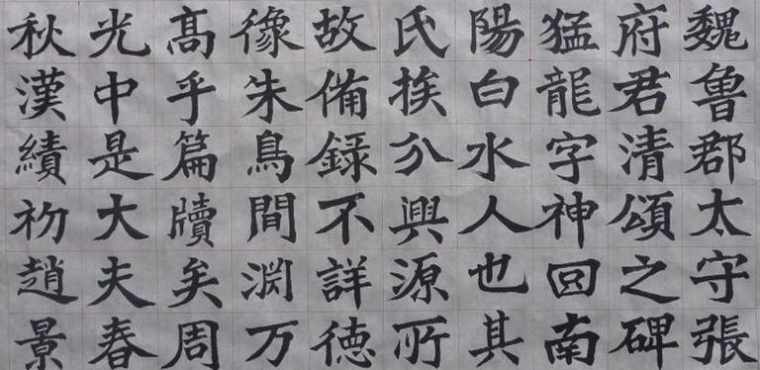 魏魯郡太守張
府君清頌之碑
猛龍字神回南
陽白水人也其
氏族分興源所
故備錄不詳德
像朱鳥間渕万
髙乎篇牘矣周
光中是大夫春
秋漢績初趙景